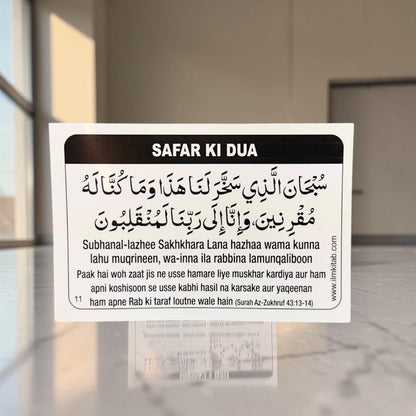 SAFAR KI DUA
سُبْحَانَ الَّذِي سَخَّرَ لَنَا هَذَا وَمَا كُنَّا لَهُ
مُقْرِنِينَ وَإِنَّا إِلَى رَبِّنَا لَمُنْقَلِبُونَ
Subhanal-lazhee Sakhkhara Lana hazhaa wama kunna
lahu muqrineen, wa-inna ila rabbina lamunqaliboon
Paak hai woh zaat jis ne usse hamare liye muskhar kardiya aur ham
apni koshisoon se usse kabhi hasil na karsake aur yaqeenan
ham apne Rab ki taraf loutne wale hain (Surah Az-Zukhruf 43:13-14)
11
www.ilmkitab.com